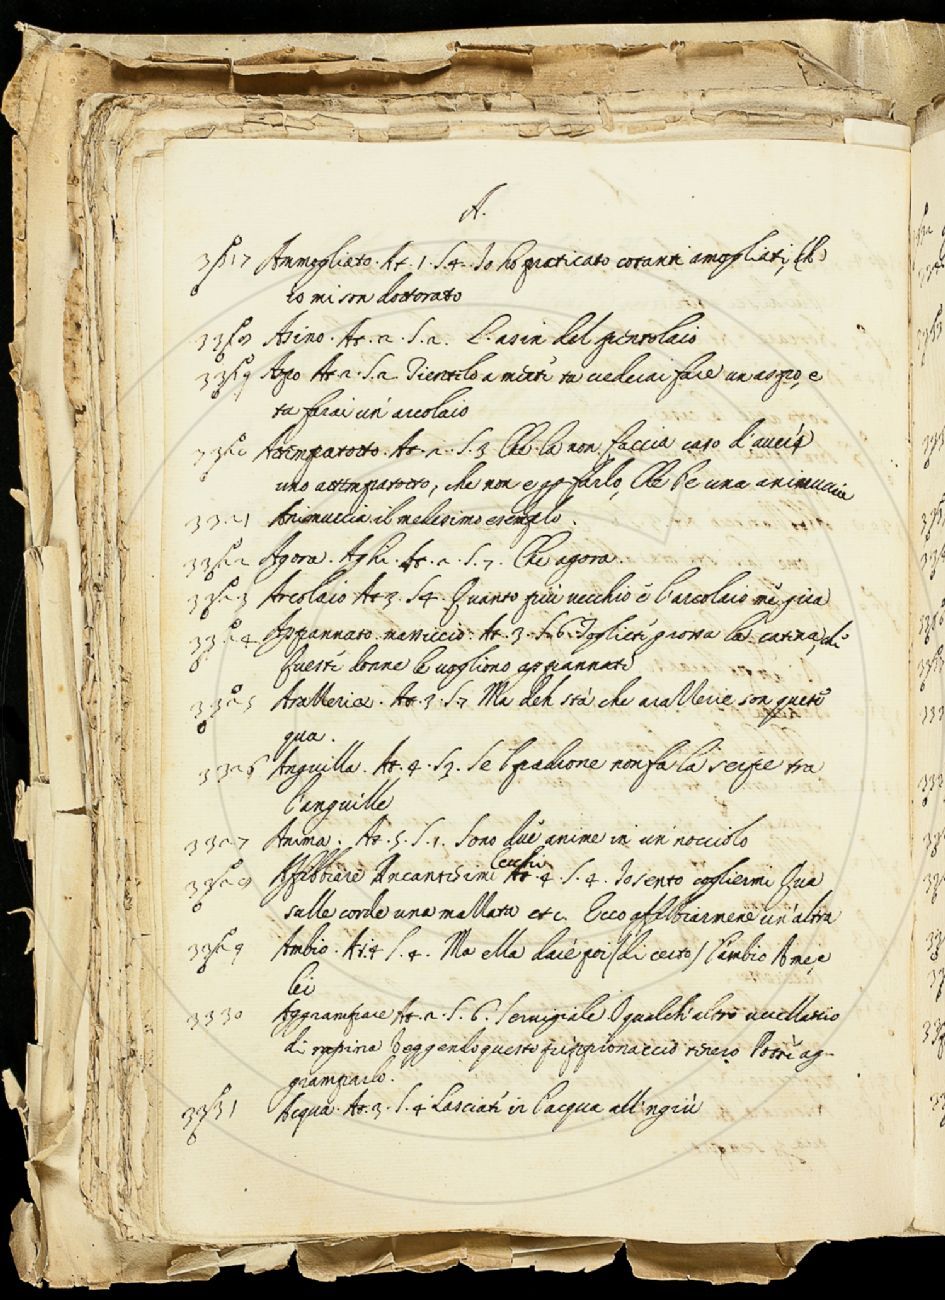 A.
3317 Ammogliato. At. 1. S. 4. Io ho praticato cotanti amogliati, Ch'
io mi son dottorato
Asino. At. 2. S. 2. L'asin del pentolaio
3319 Aspo At. 2. S. 2. Tientilo a mente tu vedevi fare un aspo, e
tu farai un' arcolaio
Attemparotto. At. 2. S. 3 Che la non faccia caso d'
uno attemparotto, che non e Che l'e una animuccia
3321 Animuccia il medesimo esemplo.
3322 Agora. Aghi. At. 2. S. 7. Che agora.
3323 Arcolaio At. 3. S. 4. Quanto più vecchio è l'arcolaio me' gira
3324 Appannato. massiccio. At. 3. S. 6. grossa la di
queste donne le vogliono appannate
3325 Aralleria. At. 3. S. 7 Ma deh stà che arallerie son queste
qua.
3326 Anguilla. At. 4. S. 3. Se 'l padrone non fa la serpe tra
l'anguille
3327 Anima. At. 5. S. 1. Sono due anime in un' nocciolo
Affibbiare Incantesimi At. 4. S. 4. Io sento cogliermi Qua
sulle corde una mallata etc. Ecco affibbiarmene un' altra
3329 Ambio. At. 4 S. 4. Ma ella darè poi (di certo) l'ambio A me, e
lei
3330 Aggrampare At. 2. S. 6. qualch' altro uccellaccio
di rapina Veggendo questo pippionaccio tenero Potrì ag-
gramparlo.
3331 Acqua. At. 3. S. 4 Lasciate ir l'acqua all' ingiù